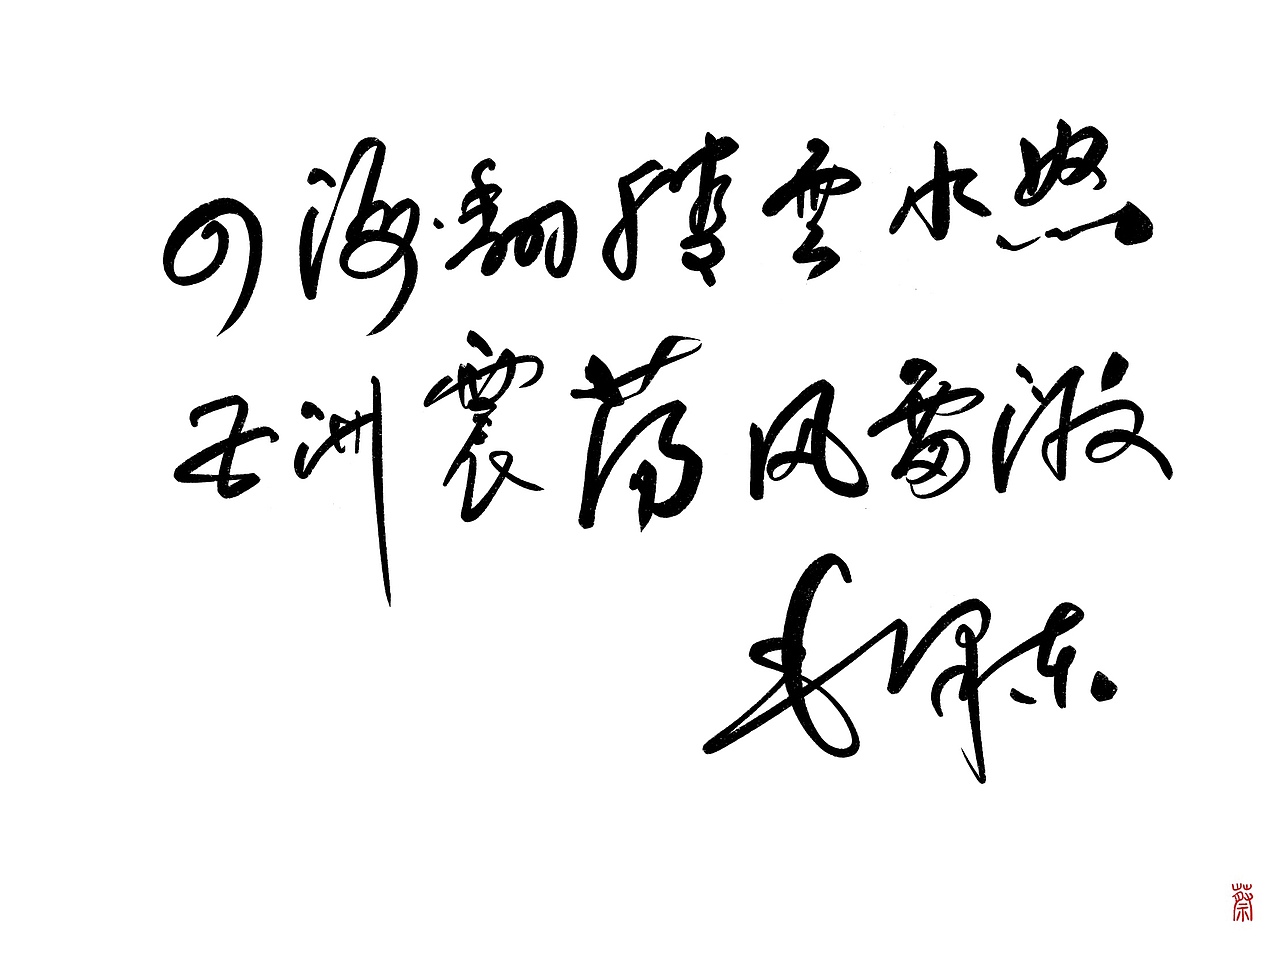 四海翻腾雲水怒
五洲震荡风雷激
毛泽东
蔡